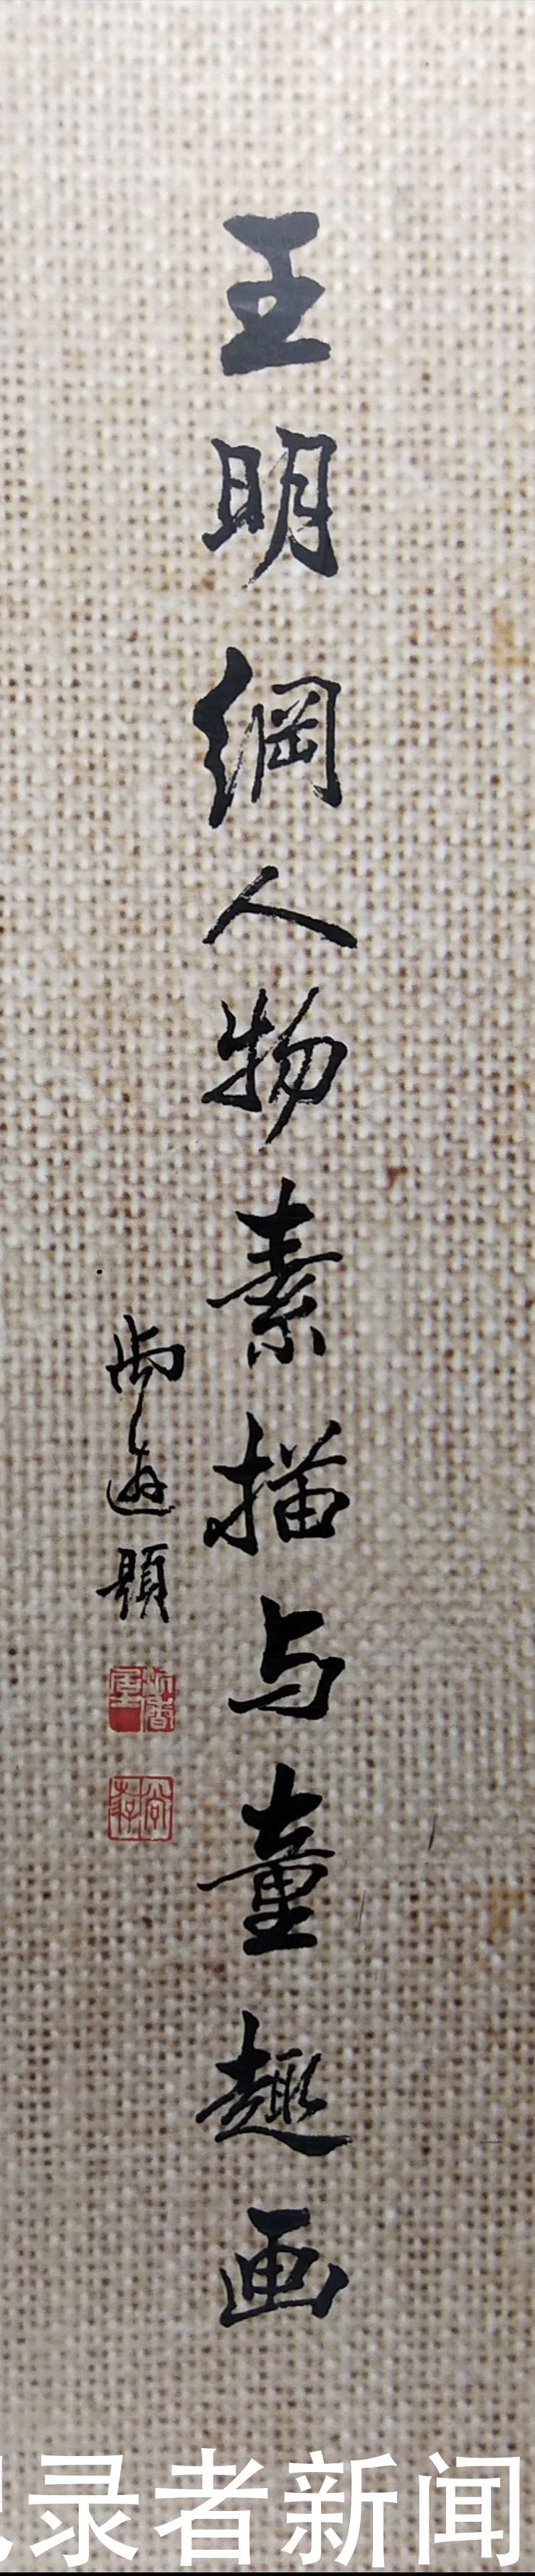 王明綱人物素描与童趣画
尚遊題
录者新闻